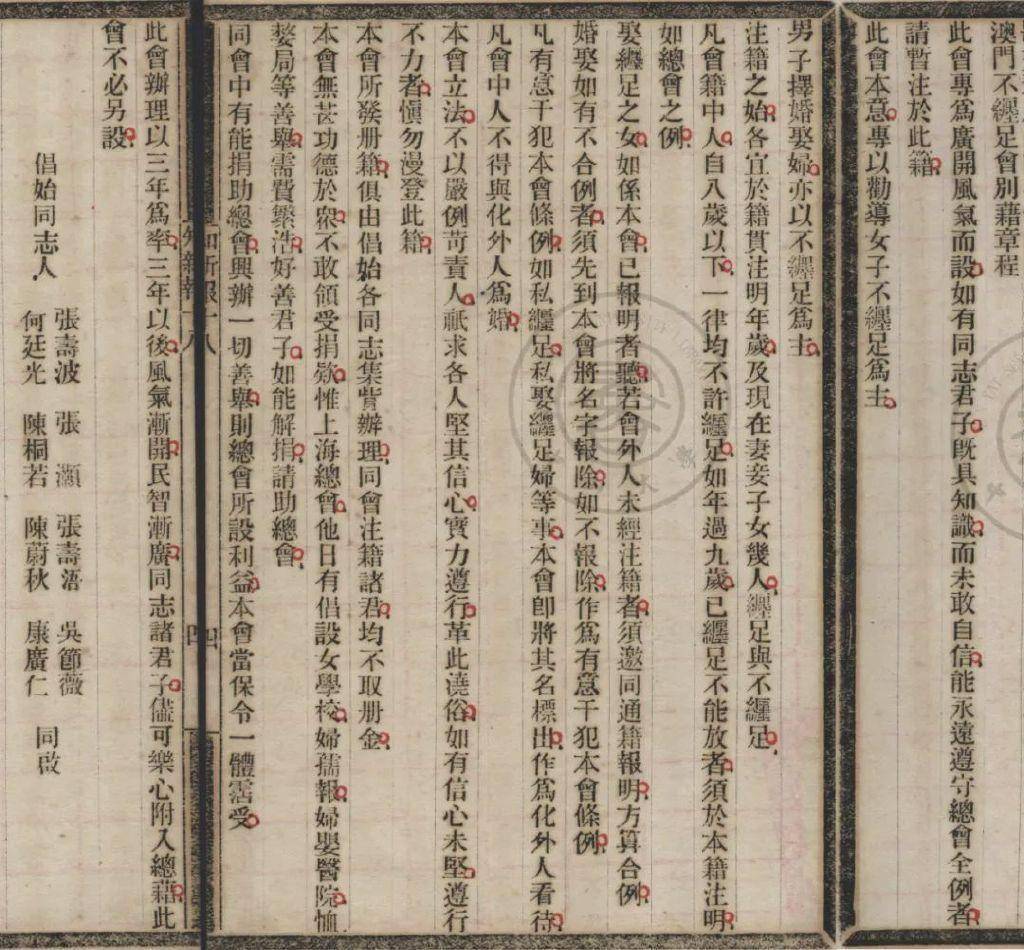 澳門不纏足會別籍章程
此會專爲廣開風氣而設。如有同志君子。既具知識。而未敢自信。能永遠遵守總會全例者。
請暫注於此籍。
此會本意。專以勸導女子不纏足爲主。
男子擇婚娶婦。亦以不纏足爲主。
注籍之始。各宜於籍貫注明年歲。及現在妻妾子女幾人。纏足與不纏足。
凡會籍中人。自八歲以下。一律均不許纏足。如年過九歲。已纏足不能放者。須於本籍注明。
如總會之例。
娶纏足之女。如係本會。已報明者聽。若會外人未經注籍者。須邀同通籍報明。方算合例。
婚娶如有不合例者。須先到本會將名字報除。如不報除。作爲有意干犯本會條例。
凡有意干犯本會條例。如私纏足。私娶纏足婦等事。本會卽將其名標出。作爲化外人看待。
凡會中人不得與化外人爲婚。
本會立法。不以嚴例苛責人。祇求各人堅其信心。實力遵行。革此澆俗。如有信心未堅。遵行
不力者。愼勿漫登此籍。
本會所發册籍。俱由倡始各同志集貲辦理。同會注籍諸君。均不取册金。
本會無甚功德於衆。不敢領受捐欵。惟上海總會。他日有倡設女學校。婦孺報。婦嬰醫院。恤
嫠局等善舉。需費繁浩。好善君子。如能解捐。請助總會。
同會中有能捐助總會。興辦一切善舉。則總會所設利益。本會當保令一體霑受。
知新報十八 四
此會辦理以三年爲率。三年以後。風氣漸開。民智漸廣。同志諸君子。儘可樂心附入總藉。此
會不必另設。
倡始同志人
張壽波 張灝 張壽浯 吳節薇
何廷光 陳桐若 陳蔚秋 康廣仁 同啟